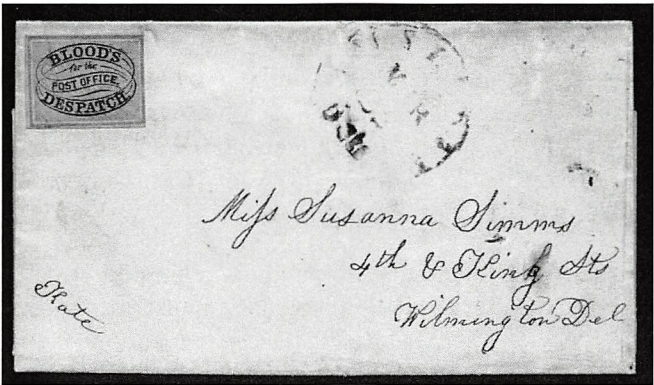 BLOOD'S
for the
POST OFFICE
DESPATCH
Miss Susanna Simms
4th & King Sts
Wilmington Del
Kate